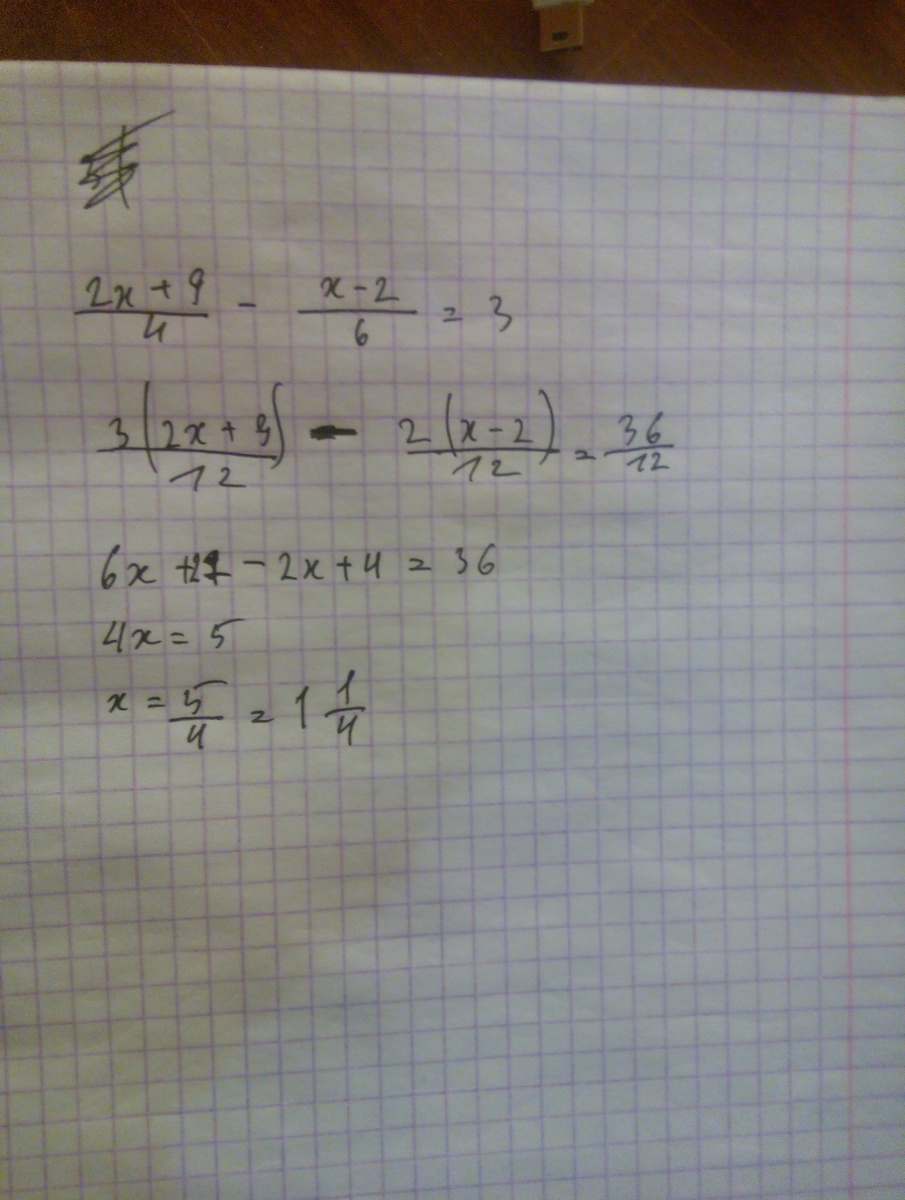 2x + 9 / 4 - x - 2 / 6 = 3
3(2x + 9) / 12 - 2(x - 2) / 12 = 36 / 12
6x + 27 - 2x + 4 = 36
4x = 5
x = 5 / 4 = 1 1/4